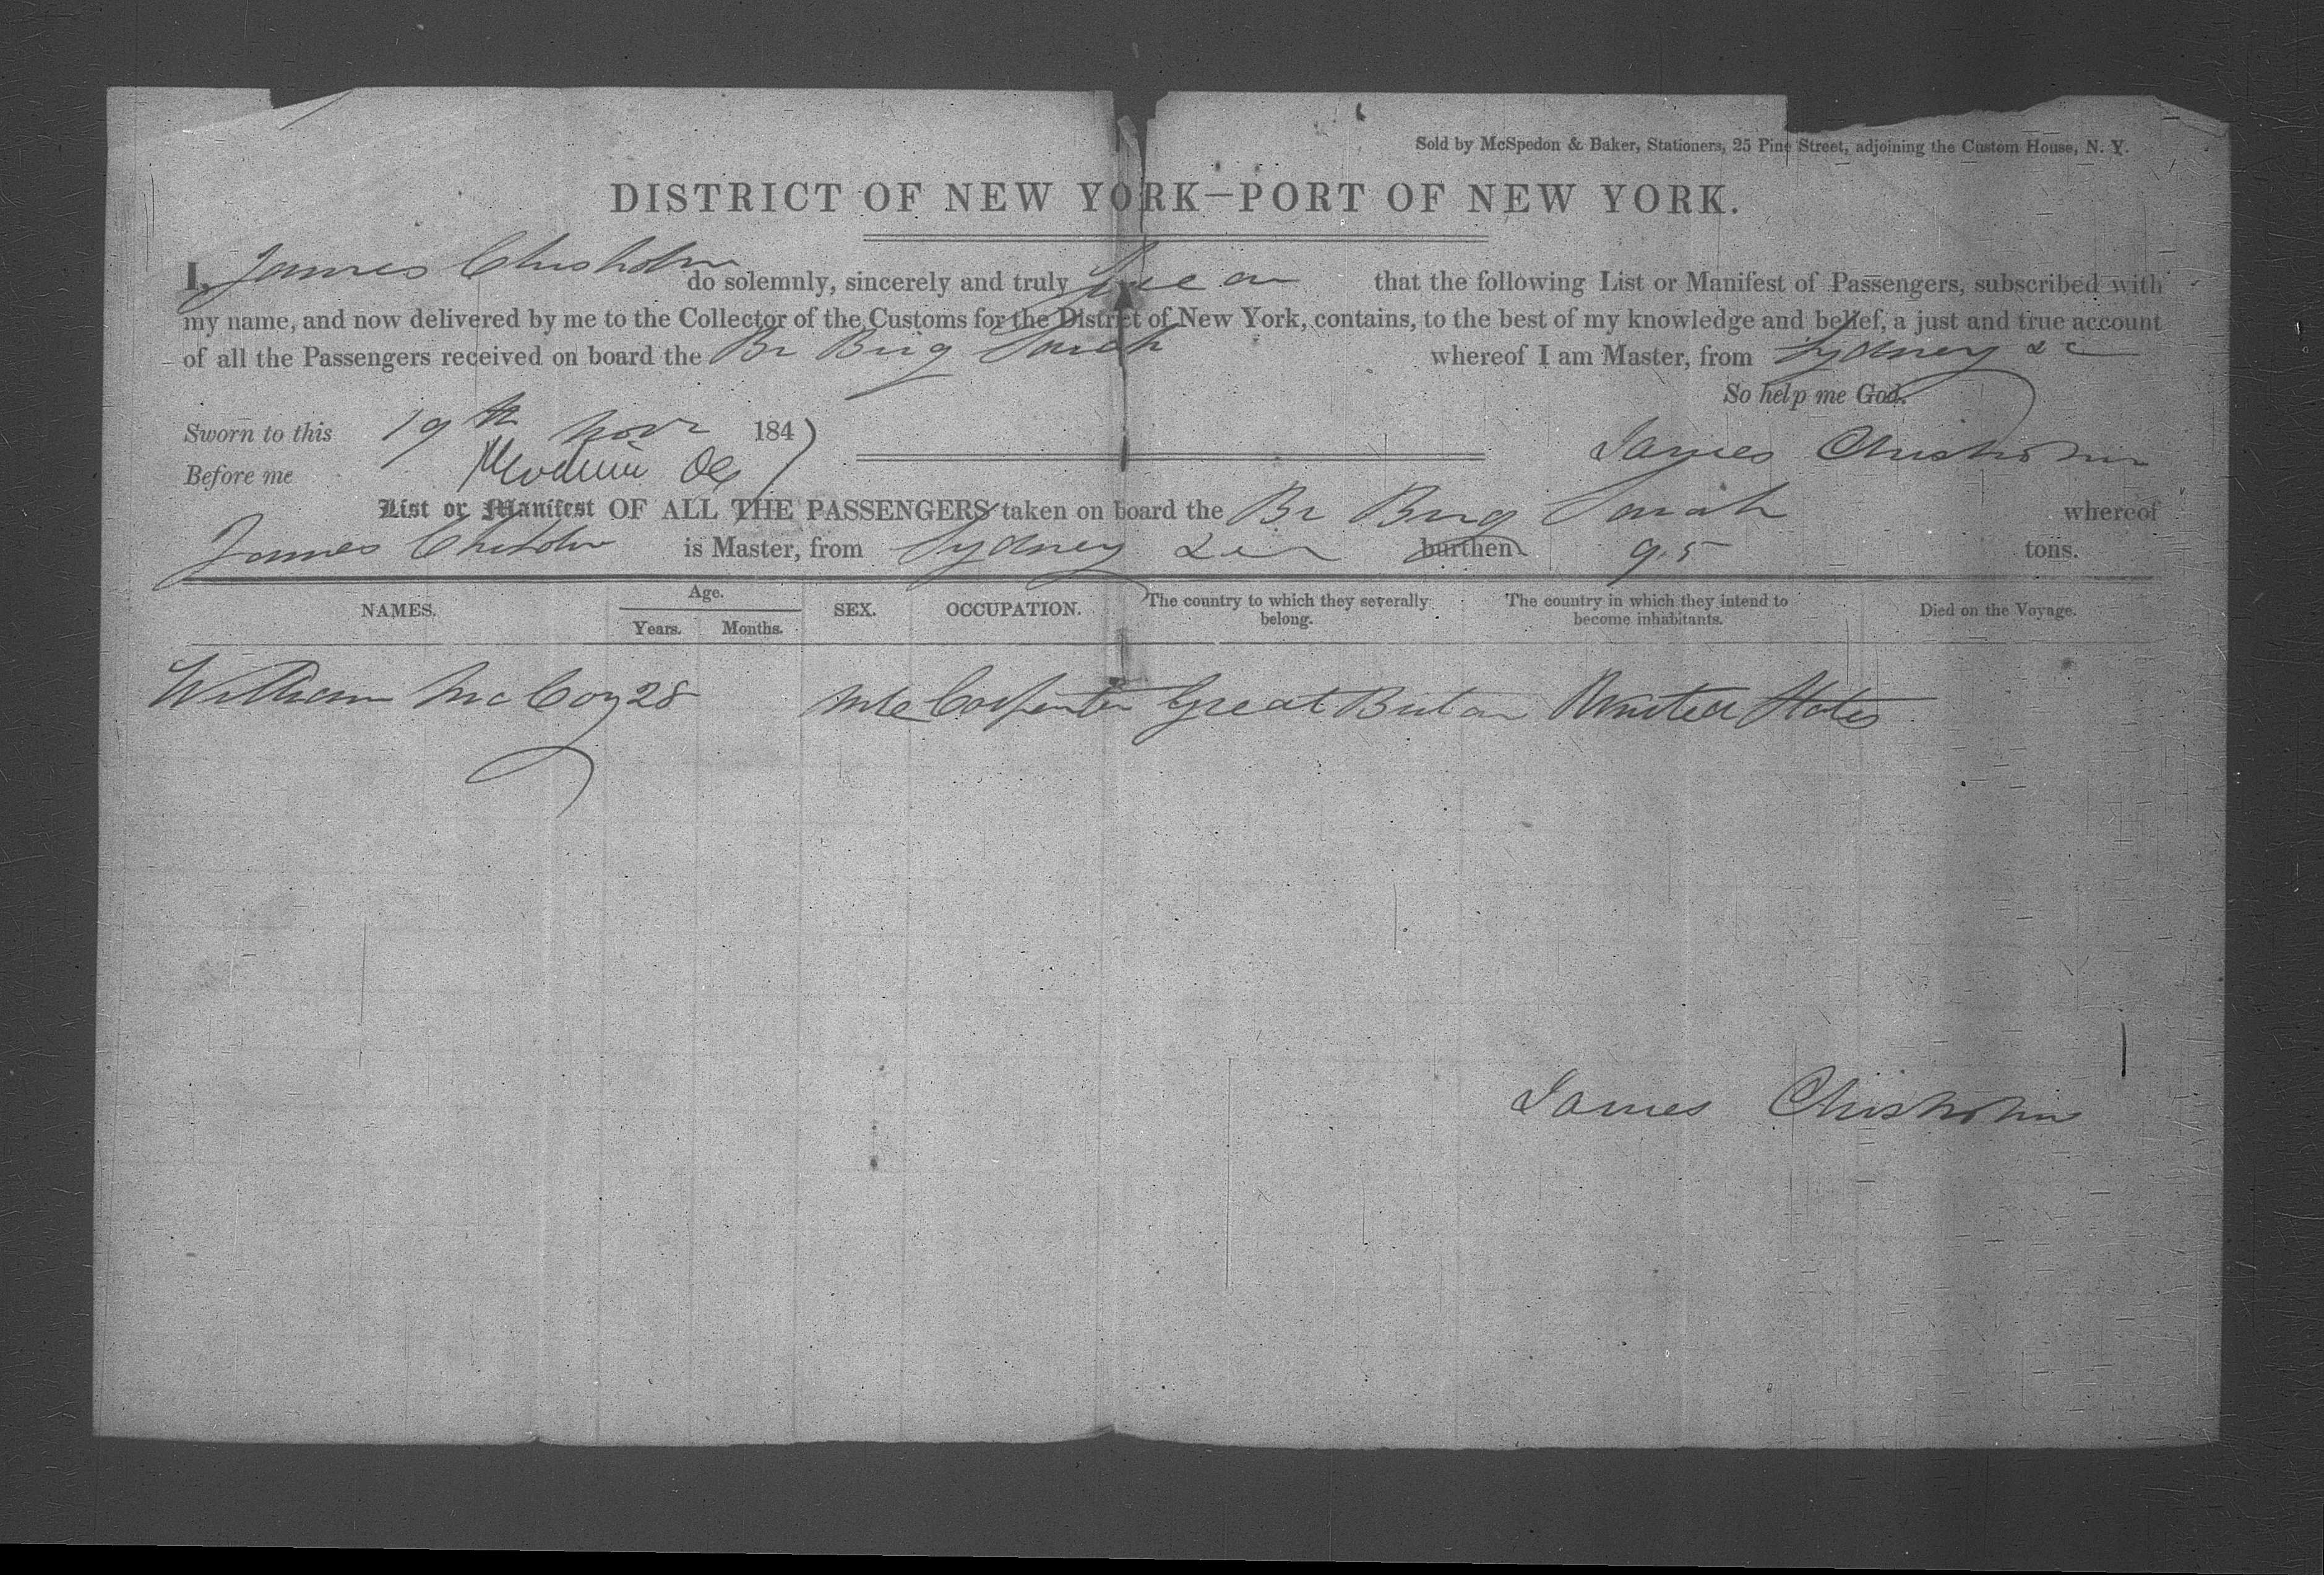 Sold by McSpedon & Baker, Stationers, 25 Pine Street, adjoining the Custom House, N. Y.
DISTRICT OF NEW YORK—PORT OF NEW YORK.
I, James Chisholm do solemnly, sincerely and truly swear that the following List or Manifest of Passengers, subscribed with
my name, and now delivered by me to the Collector of the Customs for the District of New York, contains, to the best of my knowledge and belief, a just and true account
of all the Passengers received on board the Br Brig Sarah whereof I am Master, from Sydney
So help me God.
Sworn to this 19th Novr 1847
James Chisholm
Before me
List or Manifest OF ALL THE PASSENGERS taken on board the Br Brig Sarah whereof
James Chisholm is Master, from Sydney burthen 95 tons.
NAMES. Age. Years. Months. SEX. OCCUPATION. The country to which they severally belong. The country in which they intend to become inhabitants. Died on the Voyage.
William McCoy 28 Male Carpenter Great Britan United States
James Chisholm